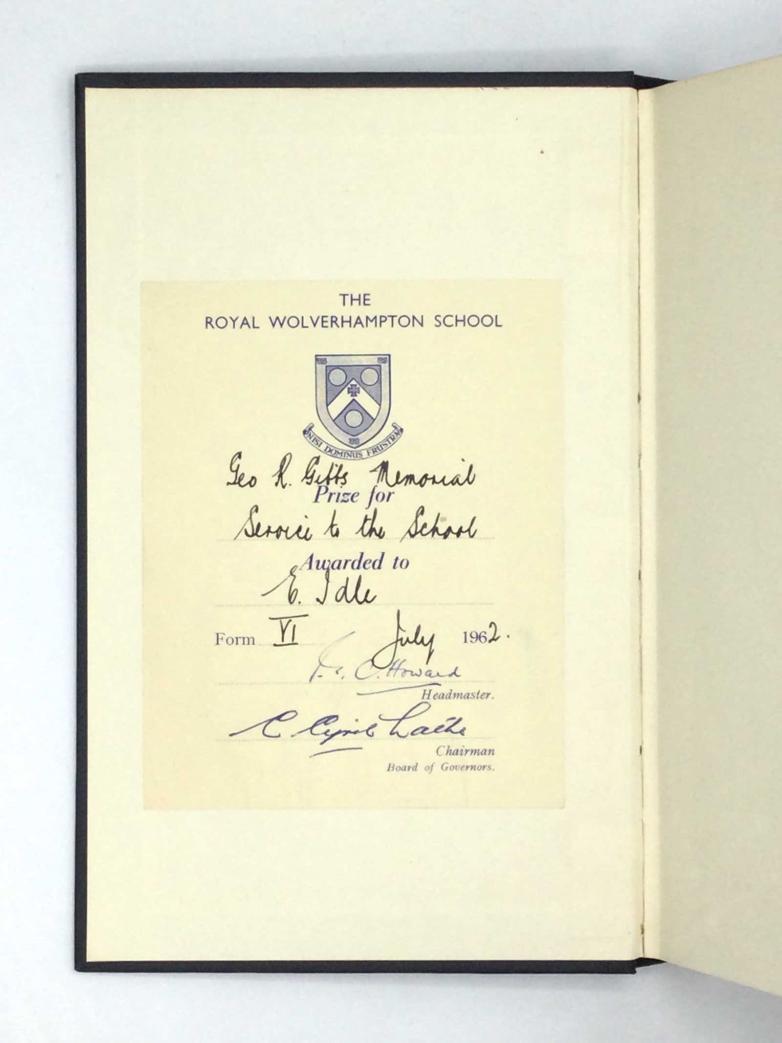 THE
ROYAL WOLVERHAMPTON SCHOOL
NISI DOMINUS FRUSTRA
Geo R. Gibbs Memorial
Prize for
Service to the School
Awarded to
E. Idle
Form VI July 1962.
C. Howard
Headmaster.
C Cyril
Chairman
Board of Governors.